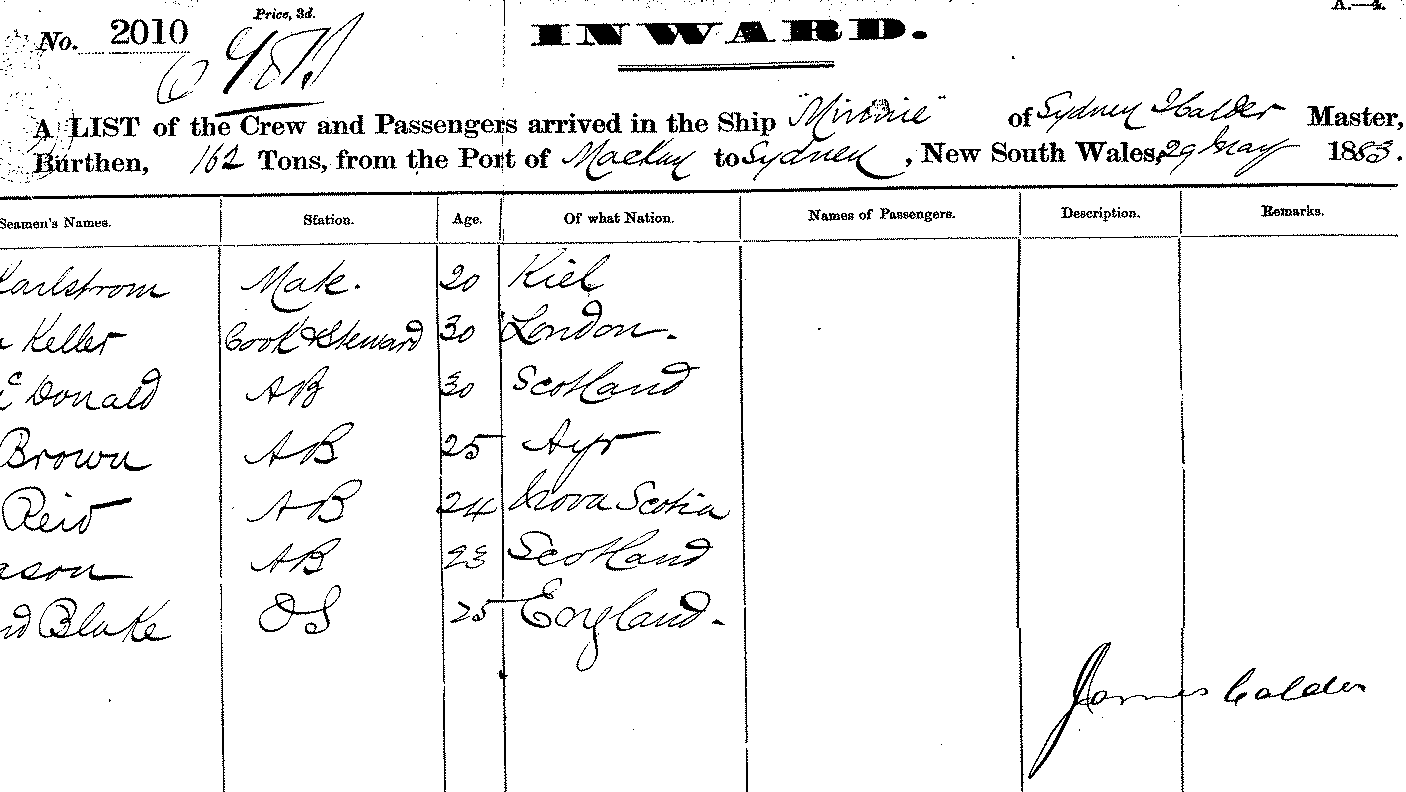 Price, 3d.
A.—4.
No. 2010
INWARD.
A LIST of the Crew and Passengers arrived in the Ship "Minonie" of Sydney Calder Master,
Burthen, 162 Tons, from the Port of Mackay to Sydney, New South Wales, 29 May 1883.
Seamen's Names. Station. Age. Of what Nation. Names of Passengers. Description. Remarks.
Karlstrom Mate. 20 Kiel
Keller Cook & Steward 30 London.
Mc Donald AB 30 Scotland
Brown AB 25 Ayr
Reid AB 24 Nova Scotia
ason AB 23 Scotland
d Blake OS 25 England.
James Calder